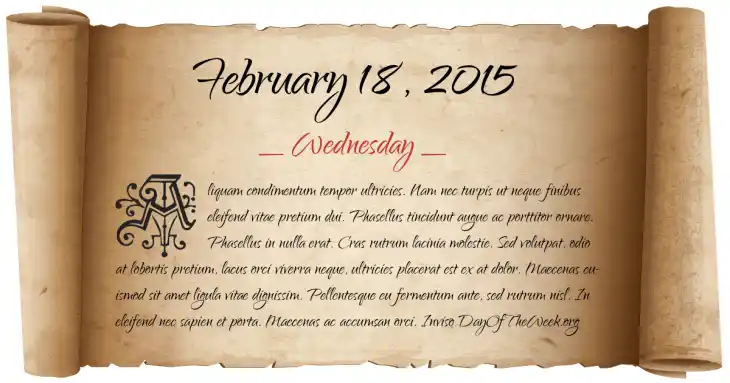 February 18, 2015
_ Wednesday _
Aliquam condimentum tempor ultricies. Nam nec turpis ut neque finibus
eleifend vitae pretium dui. Phasellus tincidunt augue ac porttitor ornare.
Phasellus in nulla erat. Cras rutrum lacinia molestie. Sed volutpat, odio
at lobortis pretium, lacus orci viverra neque, ultricies placerat est ex at dolor. Maecenas eu-
ismod sit amet ligula vitae dignissim. Pellentesque eu fermentum ante, sed rutrum nisl. In
eleifend nec sapien et porta. Maecenas ac accumsan orci. Inviso DayOfTheWeek.org